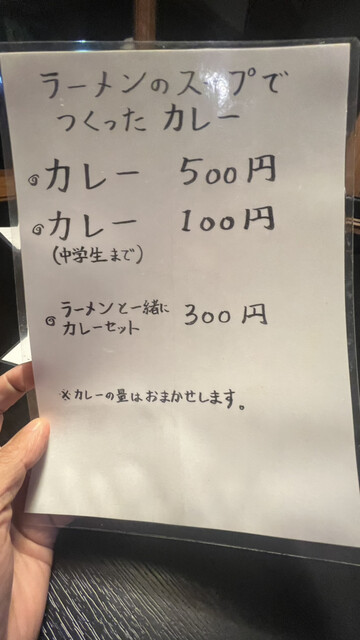 ラーメンのスープで
つくった カレー
◎カレー 500円
◎カレー 100円
(中学生まで)
◎ラーメンと一緒に
カレーセット 300円
※カレーの量はおまかせします。